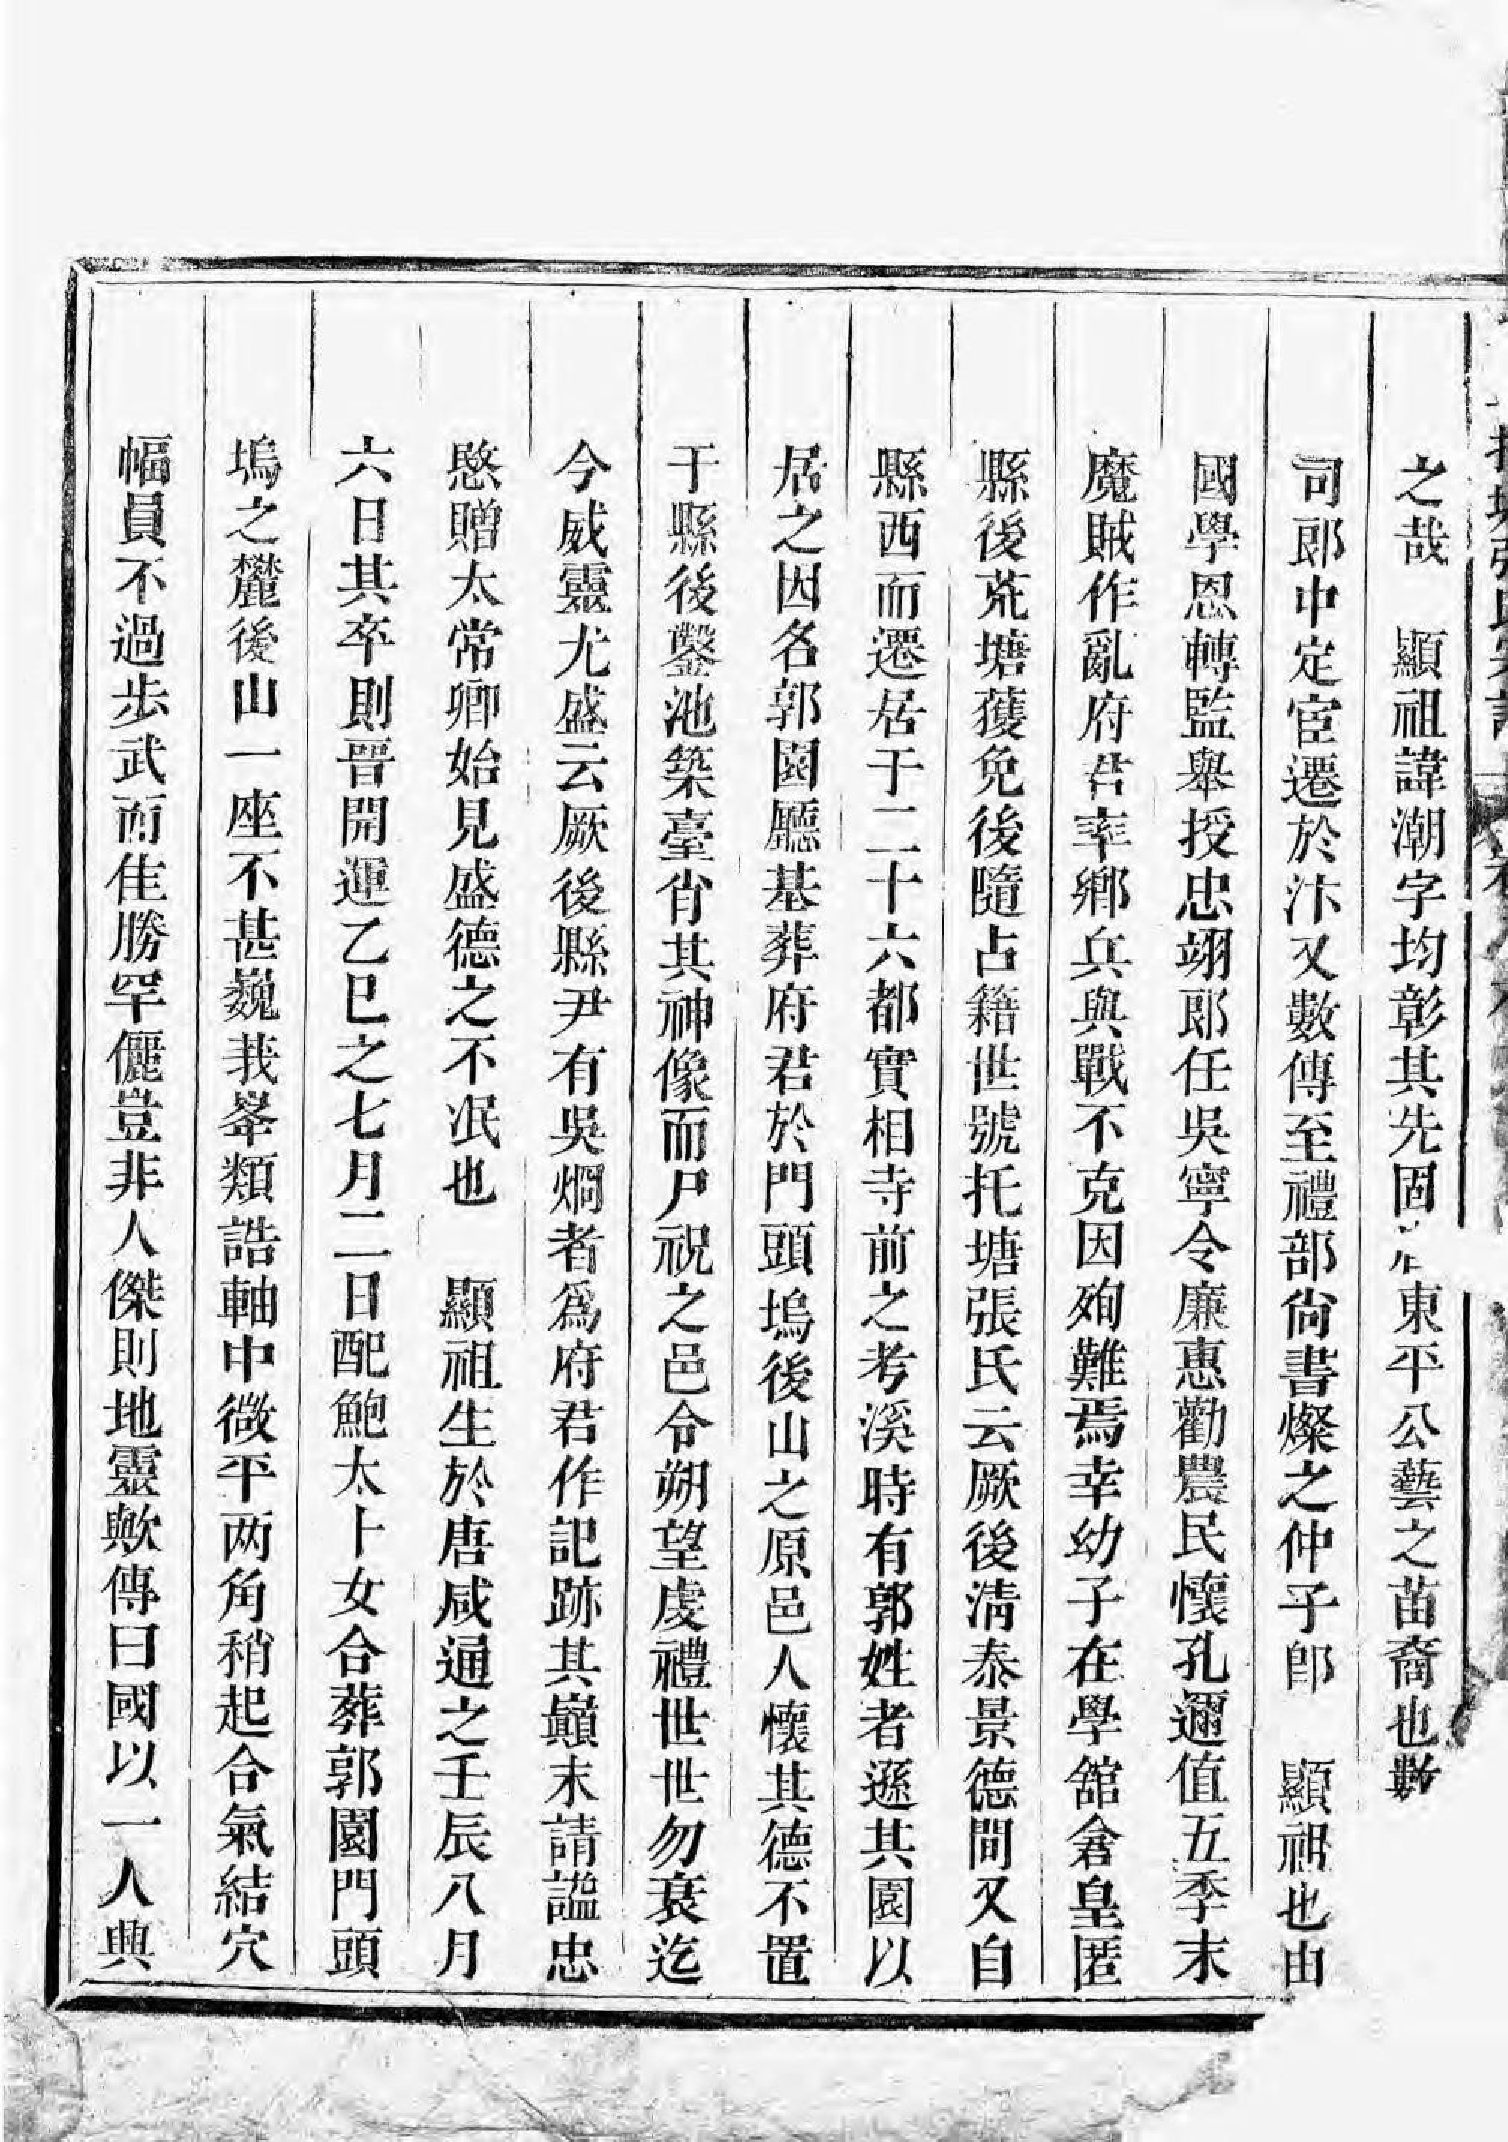 之哉　顯祖諱潮字均彰其先固東平公藝之苗裔也數
司郎中定宦遷於汴又數傳至禮部尙書燦之仲子卽　顯祖也由
國學恩轉監舉授忠翊郎任吳寧令廉惠勸農民懷孔邇值五季末
魔賊作亂府君率鄉兵與戰不克因殉難焉幸幼子在學舘倉皇匿
縣後荒塘獲免後隨占籍世號托塘張氏云厥後淸泰景德間又自
縣西而遷居于二十六都實相寺前之考溪時有郭姓者遜其園以
居之因名郭園廳基葬府君於門頭塢後山之原邑人懷其德不置
于縣後鑿池築臺肖其神像而尸祝之邑令朔望虔禮世世勿衰迄
今威靈尤盛云厥後縣尹有吳烱者爲府君作記跡其巔末請謚忠
愍贈太常卿始見盛德之不泯也　顯祖生於唐咸通之壬辰八月
六日其卒則晋開運乙巳之七月二日配鮑太卜女合葬郭園門頭
塢之麓後山一座不甚巍莪峯類誥軸中微平两角稍起合氣結穴
幅員不過步武而佳勝罕儷豈非人傑則地靈歟傳曰國以一人興